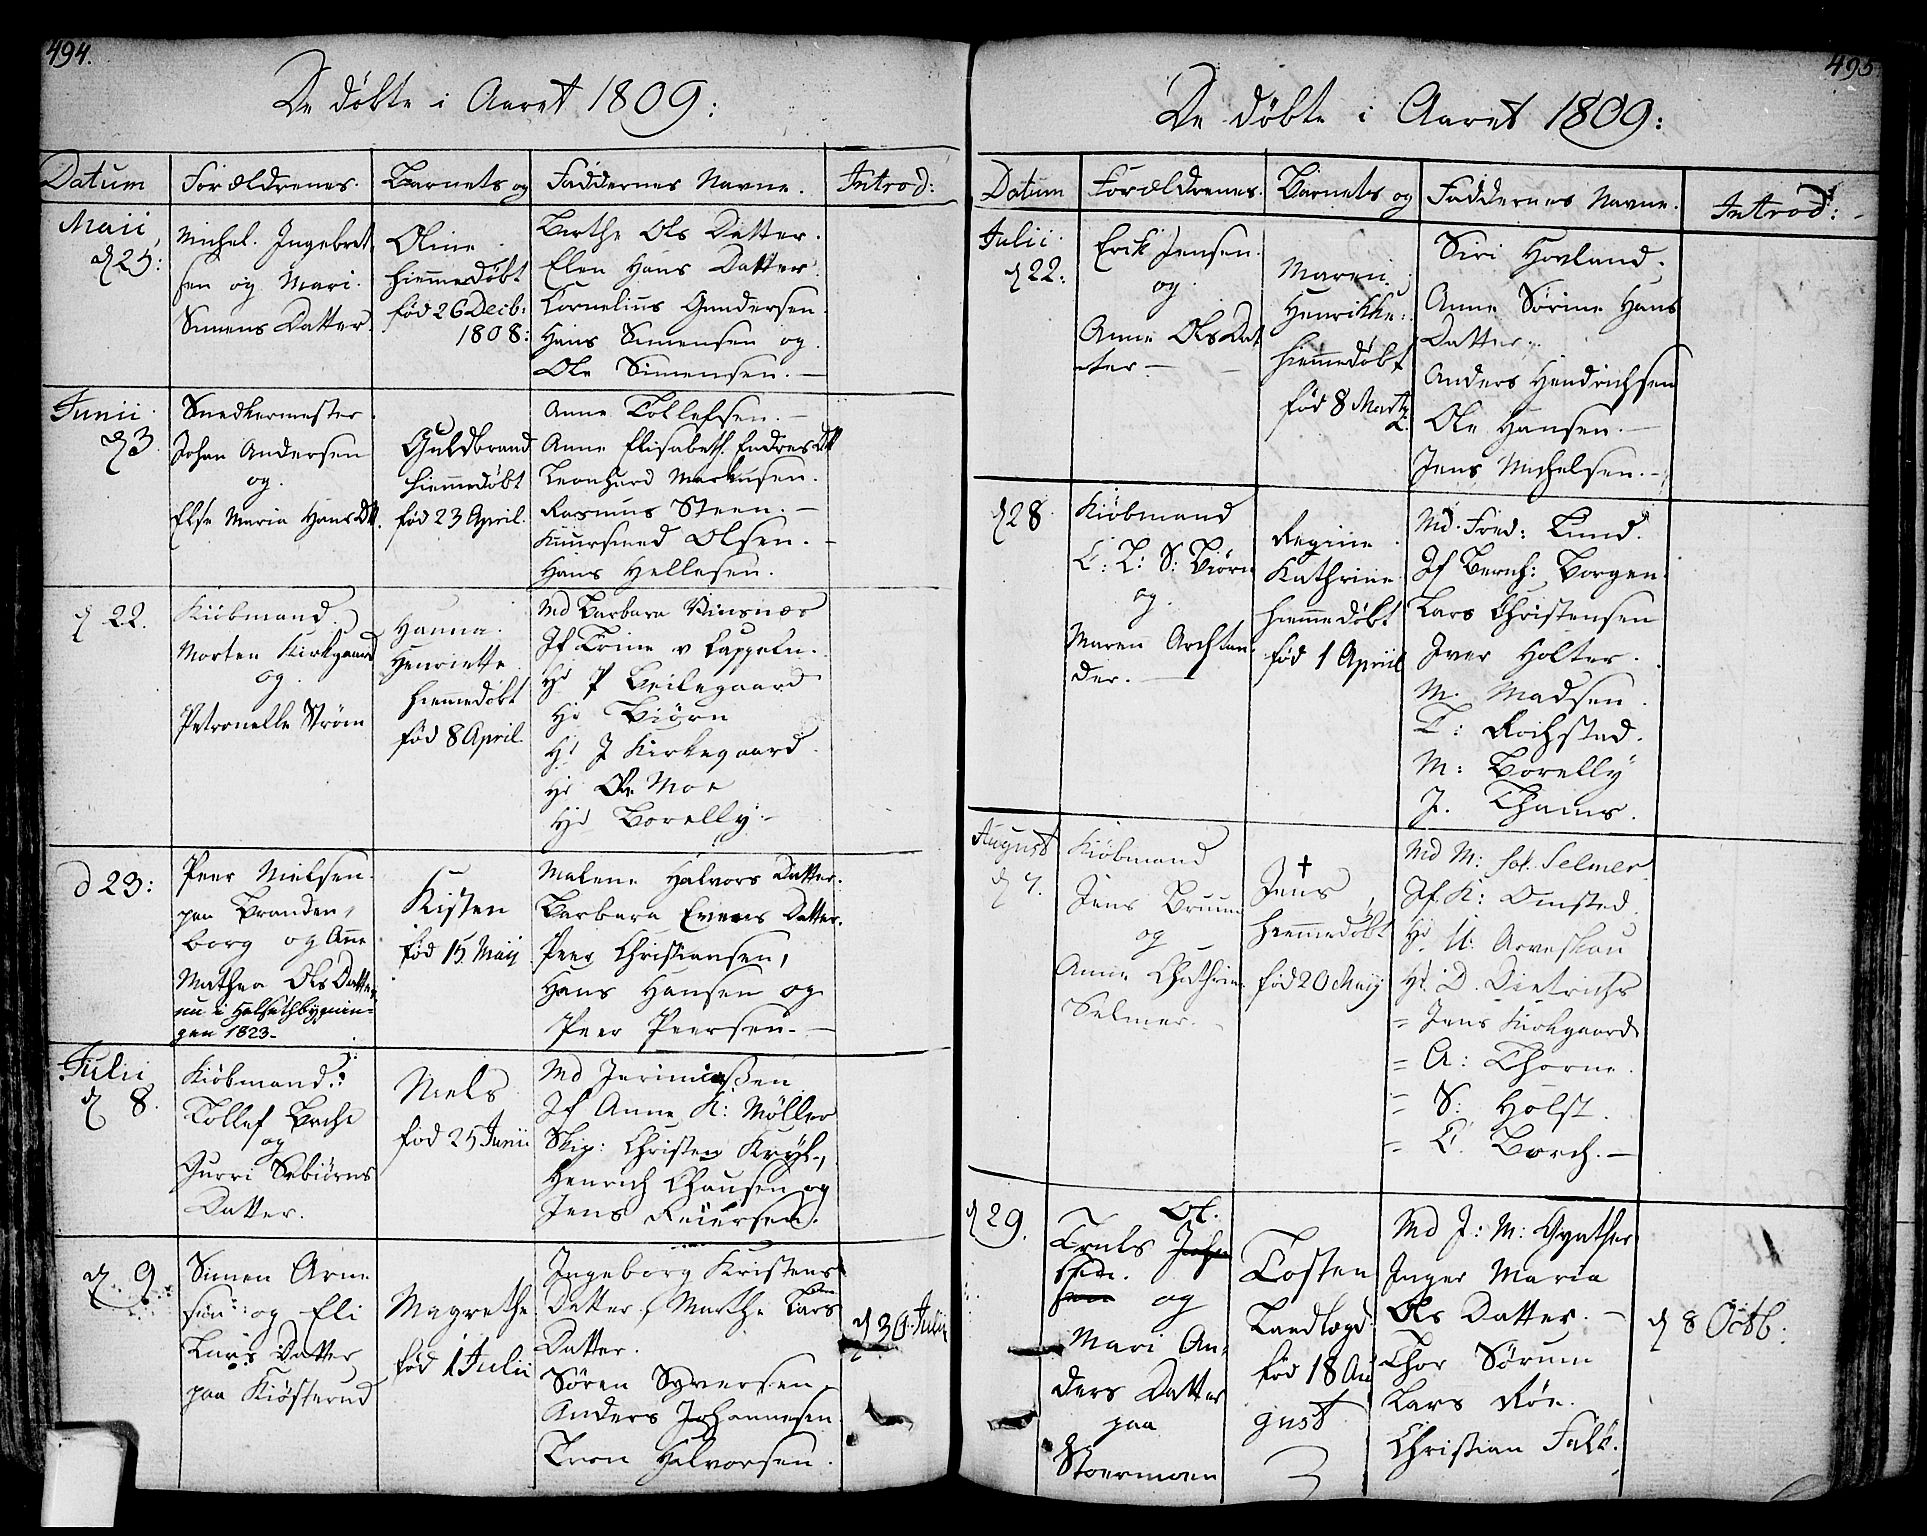 494.
De døbte i Aaret 1809:
Datum Forældrenes. Barnets og Faddernes Navne. Introd:
Maii
d 25:
Michel. Ingebret
sen og Mari.
Simens Datter.
Oline
hiemmedøbt
fød 26 Decb:
1808:
Berthe Ols Datter.
Elen Hans Datter.
Cornelius Gundersen
Hans Simensen og
Ole Simensen. —
Junii
d 3.
Snedkermester
Johan Andersen
og.
Else Maria Hans Dtt.
Guldbrand
hiemmedøbt
fød 23 April.
Anne Tollefsen. —
Anne Elisabeth Endres Dtt
Leonhard Markusen.
Rasmus Steen. —
Olsen. —
Hans Hellesen.
d 22.
Kiöbmand
Morten Kirkgaard
og.
Petronelle Strøm
Hanna.
Henriette
hiemmedøbt
fød 8 April.
Md Barbara Vinsnæs
Jf Trine v Cappeln.
Hr P Beilegaard
Hr Biørn
Hr J Kirkegaard.
Hr Ole Moe
Hr Borelly. -
d 23:
Peer Nielsen.
paa Branden,
borg og Añe
Mathea Ols Datter
nu i Holsethbygnin=
gen 1823-
Kisten
fød 15 Maij
Malene Halvors Datter.
Barbara Evens Datter.
Peer Christiansen,
Hans Hansen og
Peer Peersen. —
Julii
d 8.
Kiöbmand.:
Tollef Bache
og
Gurri Sebiörns
Datter.
Niels
fød 25 Junii
Md Jerimiaßen
Jf Anne K: Møller
Skip: Christen Kryl.,
Henrich Clausen og
Jens Reiersen.
d. 9.
Simen Arne
sen og Eli
Lars Datter
paa Kiösterud
Magrethe
fød 1 Julii
Ingeborg Kristens
Datter. Marthe Lars
Datter.
Sören Syversen
Anders Johannesen
Tron Halvorsen.
d 30. Julii
495
De døbte i Aaret 1809:
Datum Forældrenes. Barnets og Faddernes Navne. Introd: -
Julii
d 22:
Erik Jensen.
og.
Anne Ols Dat
ter —
Maren
Henrikke.
hiemmedøbt
fød 8 Marty
Siri Hovland.
Anne Sørine Hans
Datter.
Anders Hendrichsen
Ole Hansen. —
Jens Michelsen. —
d 28
Kiöbmand
C: L: S: Biörn
og.
Maren Arctan
der. —
Regine
Kathrine
hiemmedøbt
fød 1 Apriil
Md. Fred: Lund.
Jf Bernh: Borgen.
Lars Christensen
Iver Holter.
M. Madsen.
T: Rochstad.
M: Borelly
J. Thams.
August
d 7.
Kiöbmand
Jens Bruun
og
Anne Chathrine
Selmer. -
†
Jens,
hiemmedøbt
fød 20 Maij
Md M: sal. Selmer
Jf. K: Omsted
Hr U: Arveskou
Hr. D. Dietrichs
= Jens Kirkgaard
= A: Thorne.
= S: Holst.
= C. Borch. —
d 29.
Ol.
Truls Johan
sen.
sen og
Mari An,
ders Datter
paa
Stoermoen
Tosten
Landlægd:
fød 18 Au
gust
Md J: M: Gynther
Inger Maria
Ols Datter. —
Thor Sörum
Lars Röe.
Christian Falk.
d 8 Octb.